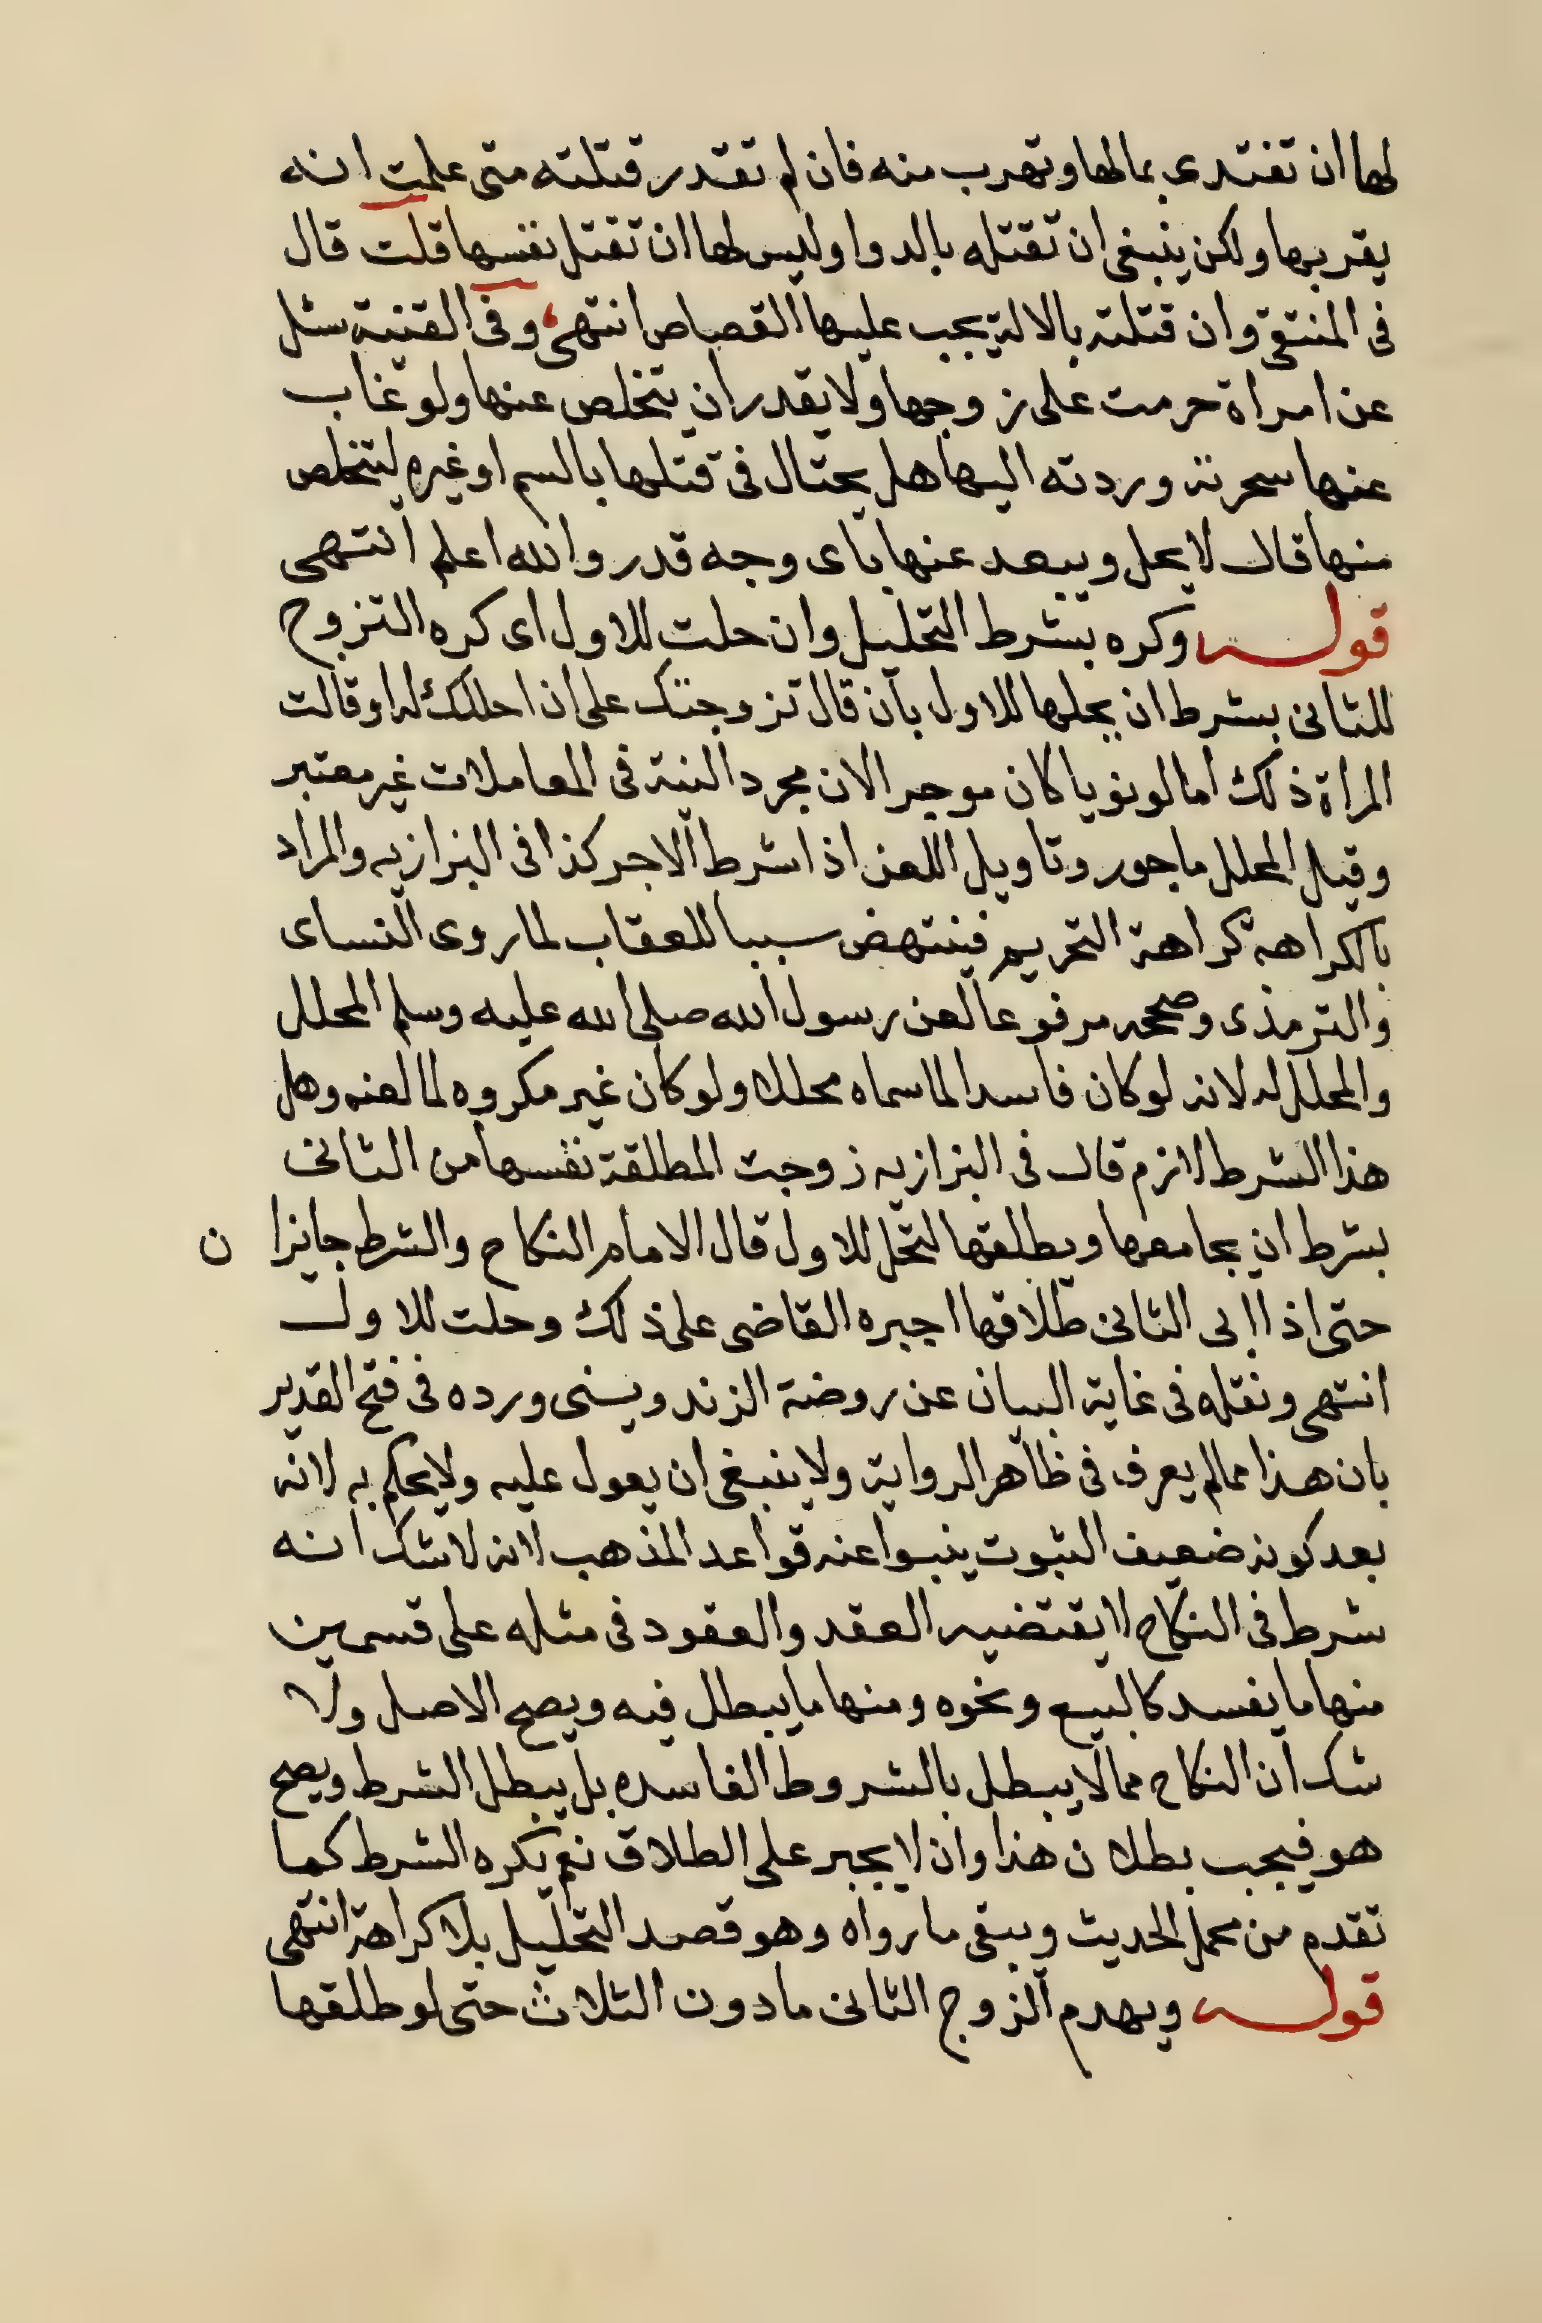 لها ان تفتدى بمالها وتهرب منه فان لم تقدر قتلته متى علمت انه
يقربها ولكن ينبغى ان تقتله بالدوا وليس لها ان تقتل نفسها قلت قال
فى المنتقى وان قتلته بالالة يجب عليها القصاص انتهى وفى القنية سئل
عن امراة حرمت على زوجها ولا يقدر ان يتخلص عنها ولو غاب
عنها سحرته وردته اليها هل يحتال فى قتلها بالسم او غيره ليتخلص
منها قال لا يحل ويبعد عنها باى وجه قدر والله اعلم انتهى
قوله وكره بشرط التحليل وان حلت للاول اى كره التزوج
للثانى بشرط ان يحلها للاول بان قال تزوجتك على ان احللك له او قالت
المراة ذلك اما لو نويا كان موجرا لان مجرد النية فى المعاملات غير معتبر
وقيل المحلل ماجور وتاويل اللعن اذا شرط الاجر كذا فى البزازيه والمراد
بالكراهة كراهة التحريم فينتهض سببا للعقاب لما روى النساى
والترمذى وصححه مرفوعا لعن رسول الله صلى الله عليه وسلم المحلل
والمحلل له لانه لو كان فاسدا لما سماه محللا ولو كان غير مكروه لما لعنه وهل
هذا الشرط لازم قال فى البزازيه زوجت المطلقة نفسها من الثانى
بشرط ان يجامعها ويطلقها لتحل للاول قال الامام النكاح والشرط جايزا ن
حتى اذا ابى الثانى طلاقها اجبره القاضى على ذلك وحلت للاول
انتهى ونقله فى غاية البيان عن روضة الزندويسنى ورده فى فتح القدير
بان هذا مما لم يعرف فى ظاهر الرواية ولا ينبغى ان يعول عليه ولا يحكم به لانه
بعد كونه ضعيف الثبوت ينبوا عنه قواعد المذهب لانه لا شك انه
شرط فى النكاح لا يقتضيه العقد والعقود فى مثله على قسمين
منها ما يفسد كالبيع ونحوه ومنها ما يبطل فيه ويصح الاصل ولا
شك ان النكاح مما لا يبطل بالشروط الفاسده بل يبطل الشرط ويصح
هو فيجب بطلان هذا وان لا يجبر على الطلاق نعم يكره الشرط كما
تقدم من محمل الحديث ويبقى ما رواه وهو قصد التحليل بلا كراهة انتهى
قوله ويهدم الزوج الثانى ما دون الثلاث حتى لو طلقها